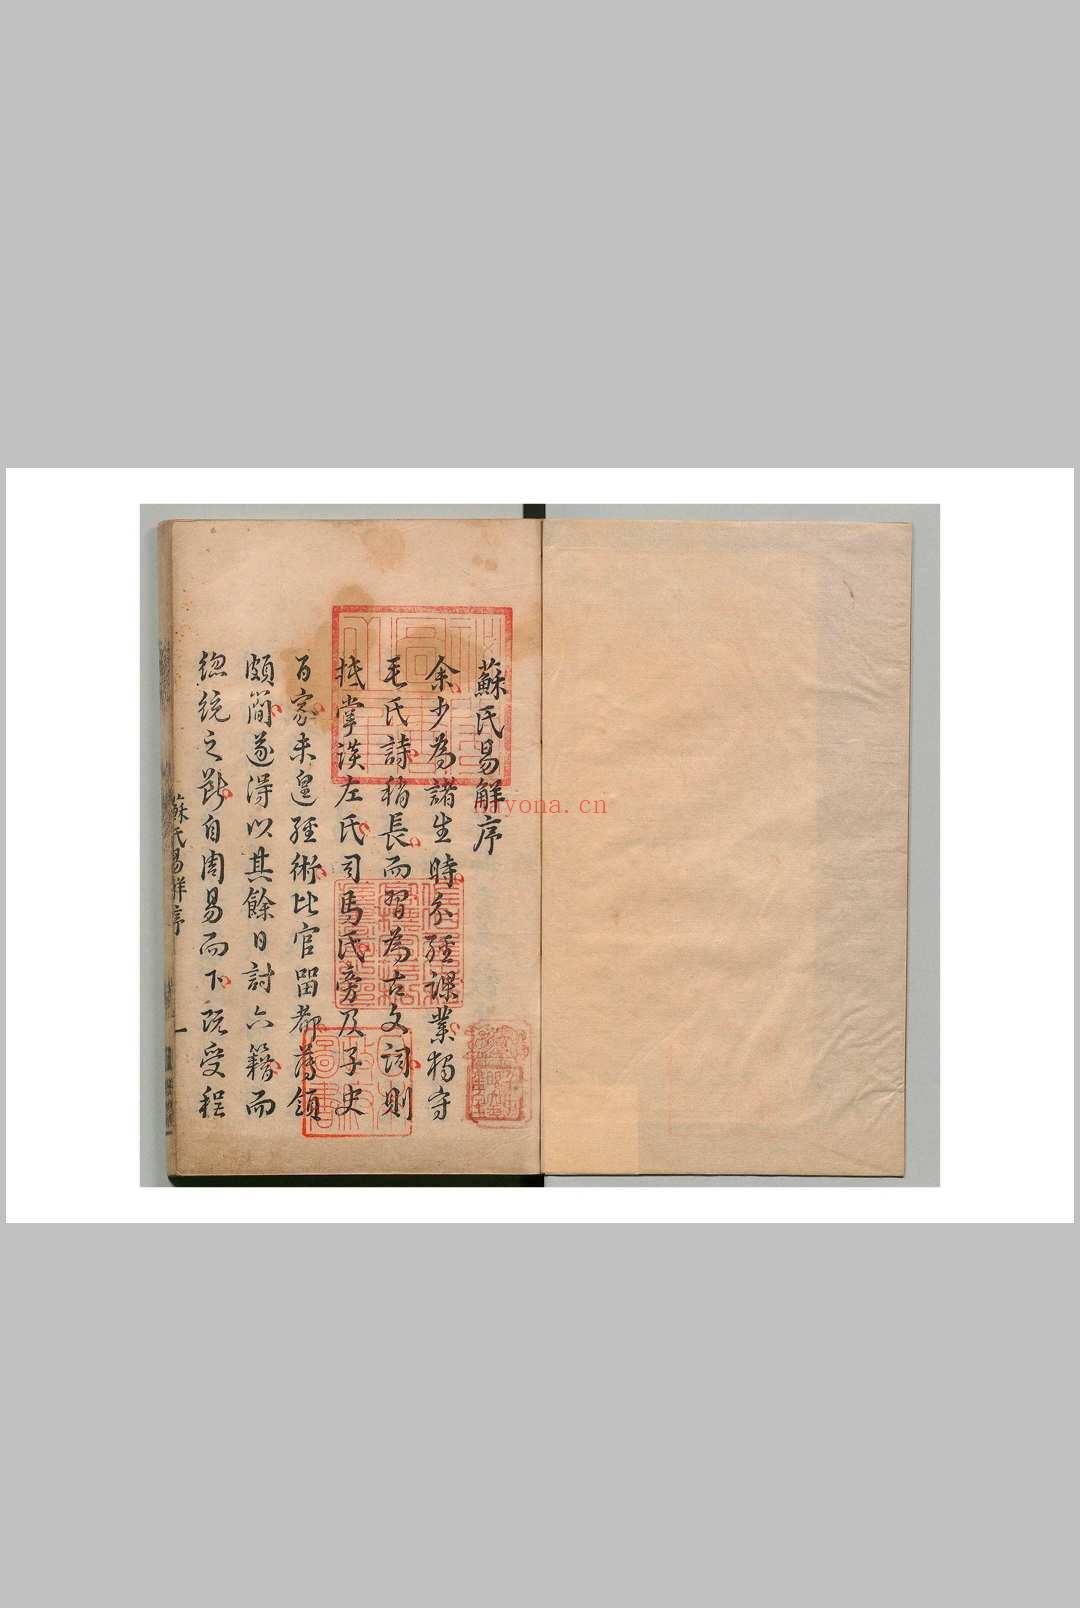 蘇氏易解序
余少為諸生時分經課業獨守
毛氏詩稍長而習為古文詞則
抵掌談左氏司馬氏旁及子史
百家未遑經術比官留都簿領
頗簡遂得以其餘日討六籍而
總統之斷自周易而下既受程
蘇氏易解序
一
nayona.cn